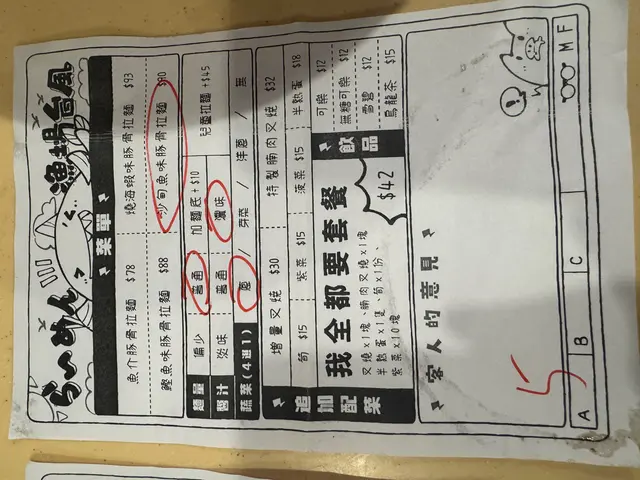 らーめん 漁場台風
菜單
魚介豚骨拉麵 $78 燒海蝦味豚骨拉麵 $93
鰹魚味豚骨拉麵 $88 沙甸魚味豚骨拉麵 $90
麵量 偏少 普通 加麵底 +$10 兒童拉麵 +$45
醬汁 淡味 普通 濃味
蔬菜(4選1) 蔥 / 芽菜 / 洋蔥 / 無
追加配菜
增量叉燒 $30 特製腩肉叉燒 $32
筍 $15 紫菜 $15 菠菜 $15 半熟蛋 $18
我全都要套餐
$42
叉燒x1塊、腩肉叉燒x1塊、
半熟蛋x1隻、筍x1份、
紫菜x10塊
飲品
可樂 $12
無糖可樂 $12
雪碧 $12
烏龍茶 $15
客人的意見
5
A B C M F